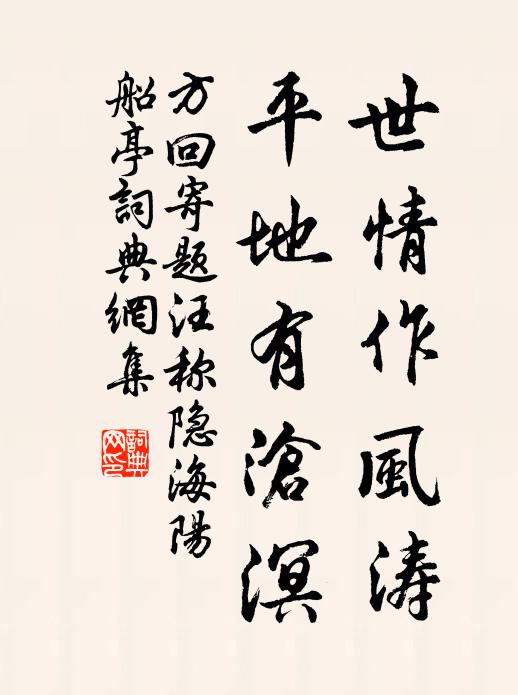 世情作風涛
平地有滄溟
方回寄题汪称隐海陽
船亭詞典網集
詞典网印